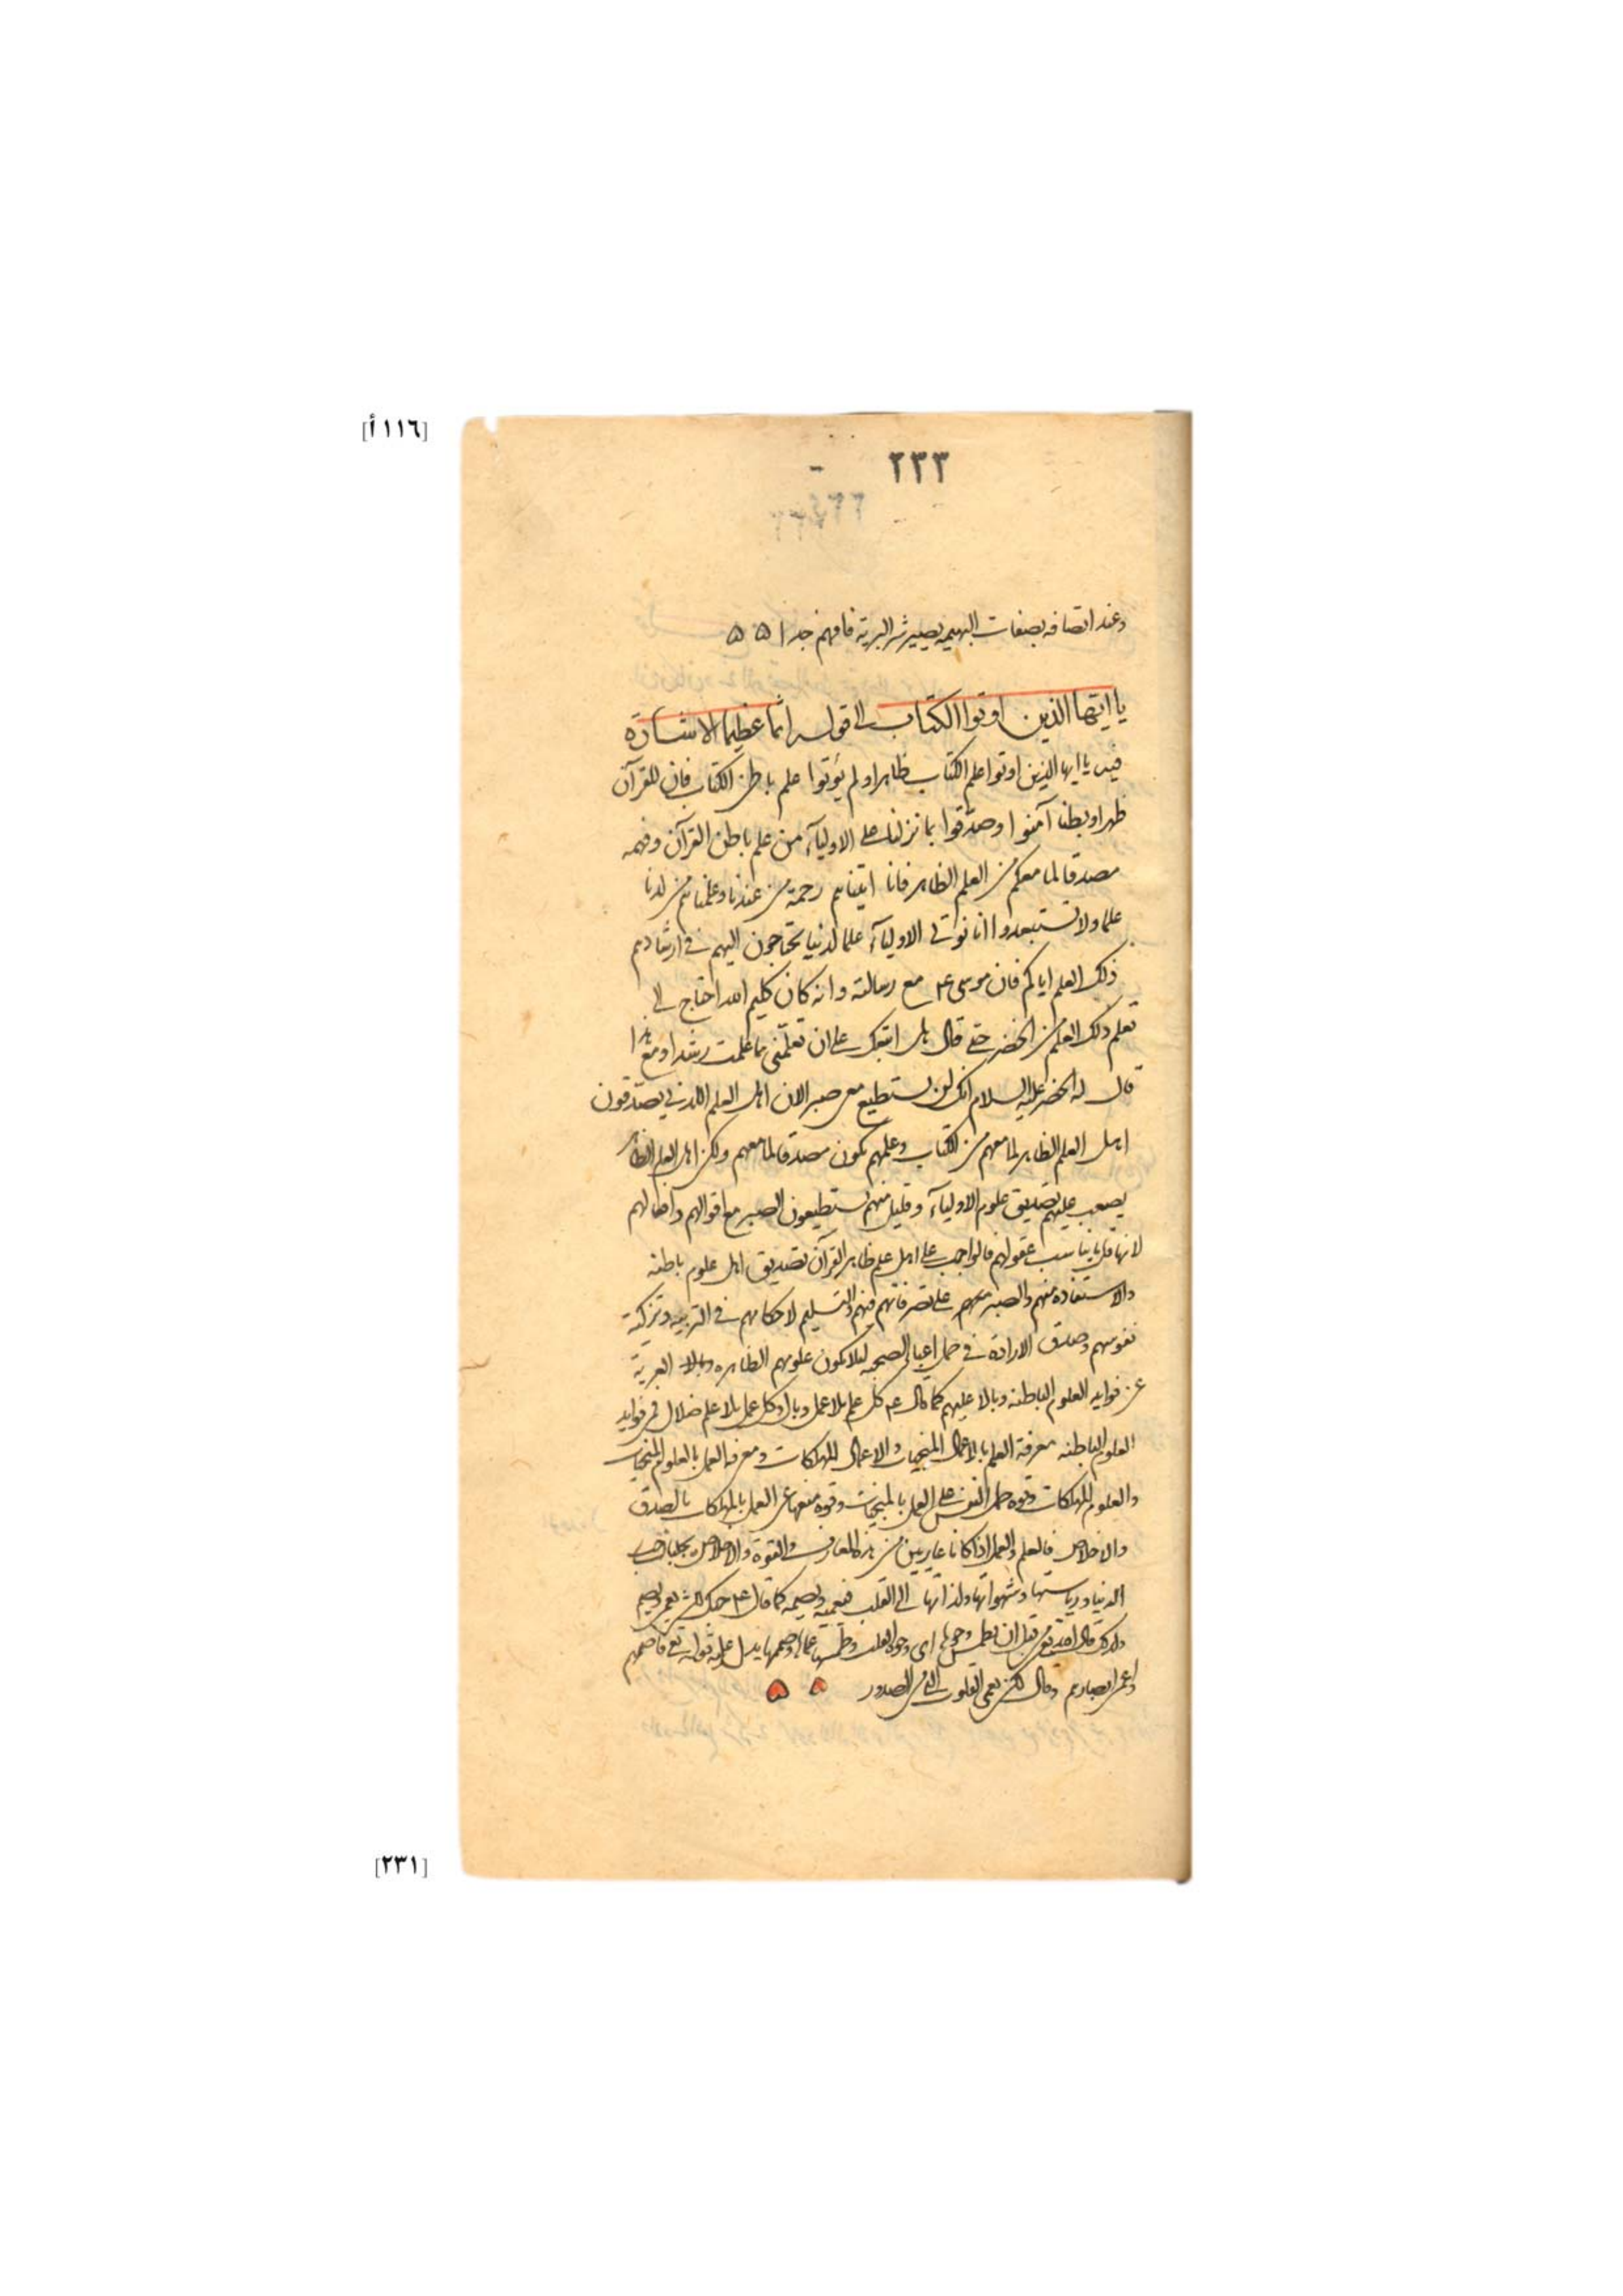 [١١٦أ]
٢٣٣
وعند اتصافه بصفات البهيمه يصير شر البرية فافهم جدا ۵ ۵
يا ايها الذين اوتوا الكتاب الى قوله اثما عظيما الاشارة
فيه يا ايها الذين اوتوا علم الكتاب ظاهرا ولم يؤتوا علم باطن الكتاب فان للقرآن
ظهرا وبطنا آمنوا وصدقوا بما نزلنا على الاولياء من علم باطن القرآن وفهمه
مصدقا لما معكم من العلم الظاهر فانا اتيناهم رحمة من عندنا وعلمناهم من لدنا
علما ولا تستبعدوا انا نؤتى الاولياء علما لدنيا تحتاجون اليهم في ارشادهم
ذلك العلم اياكم فان موسى ع م مع رسالته وانه كان كليم الله احتاج الى
تعلم ذلك العلم من الخضر حتى قال هل اتبعك على ان تعلمنى مما علمت رشدا ومع هذا
قال له الخضر عليه السلام انك لن تستطيع معى صبرا لان اهل العلم اللدنى يصدقون
اهل العلم الظاهر لما معهم من الكتاب وعلمهم يكون مصدقا لما معهم ولكن اهل العلم الظاهر
يصعب عليهم تصديق علوم الاولياء وقليل منهم يستطيعون الصبر مع اقوالهم وافعالهم
لانها قل ما يناسب عقولهم فالواجب على اهل علم ظاهر القرآن تصديق اهل علوم باطنه
والاستفاده منهم والصبر معهم على تصرفاتهم فيهم والتسليم لاحكامهم في التربيه وتزكية
نفوسهم وصدق الارادة في حمل اعباء الصحبه ليلا يكون علومهم الظاهره وبالا العرية
عن فوايد العلوم الباطنه وبالا عليهم كما قال ع م كل علم بلا عمل وبال وكل عمل بلا علم ضلال فمن فوايد
العلوم الباطنه معرفة العلم بالاعمال المنجيات والاعمال المهلكات ومعرفه العمل بالعلوم المنجيات
والعلوم المهلكات وقوه حمل النفس على العمل بالمنجيات وقوه منعها عن العمل بالمهلكات بالصدق
والاخلاص فالعلم والعمل اذا كانا عاريين من هذه المعارف والقوة والاخلاص يجلبان حب
الدنيا ورياستها وشهواتها ولذاتها الى القلب فتعميه وتصمه كما قال ع م حبك الشى يعمى ويصم
ولذلك قال الله تعالى من قبل ان نطمس وجوها اى وجوه القلب وطمسها عماها وصممها يدل عليه قوله تعالى فاصمهم
واعمى ابصارهم وقال ولكن تعمى القلوب التى في الصدور ۵ ۵
[٢٣١]